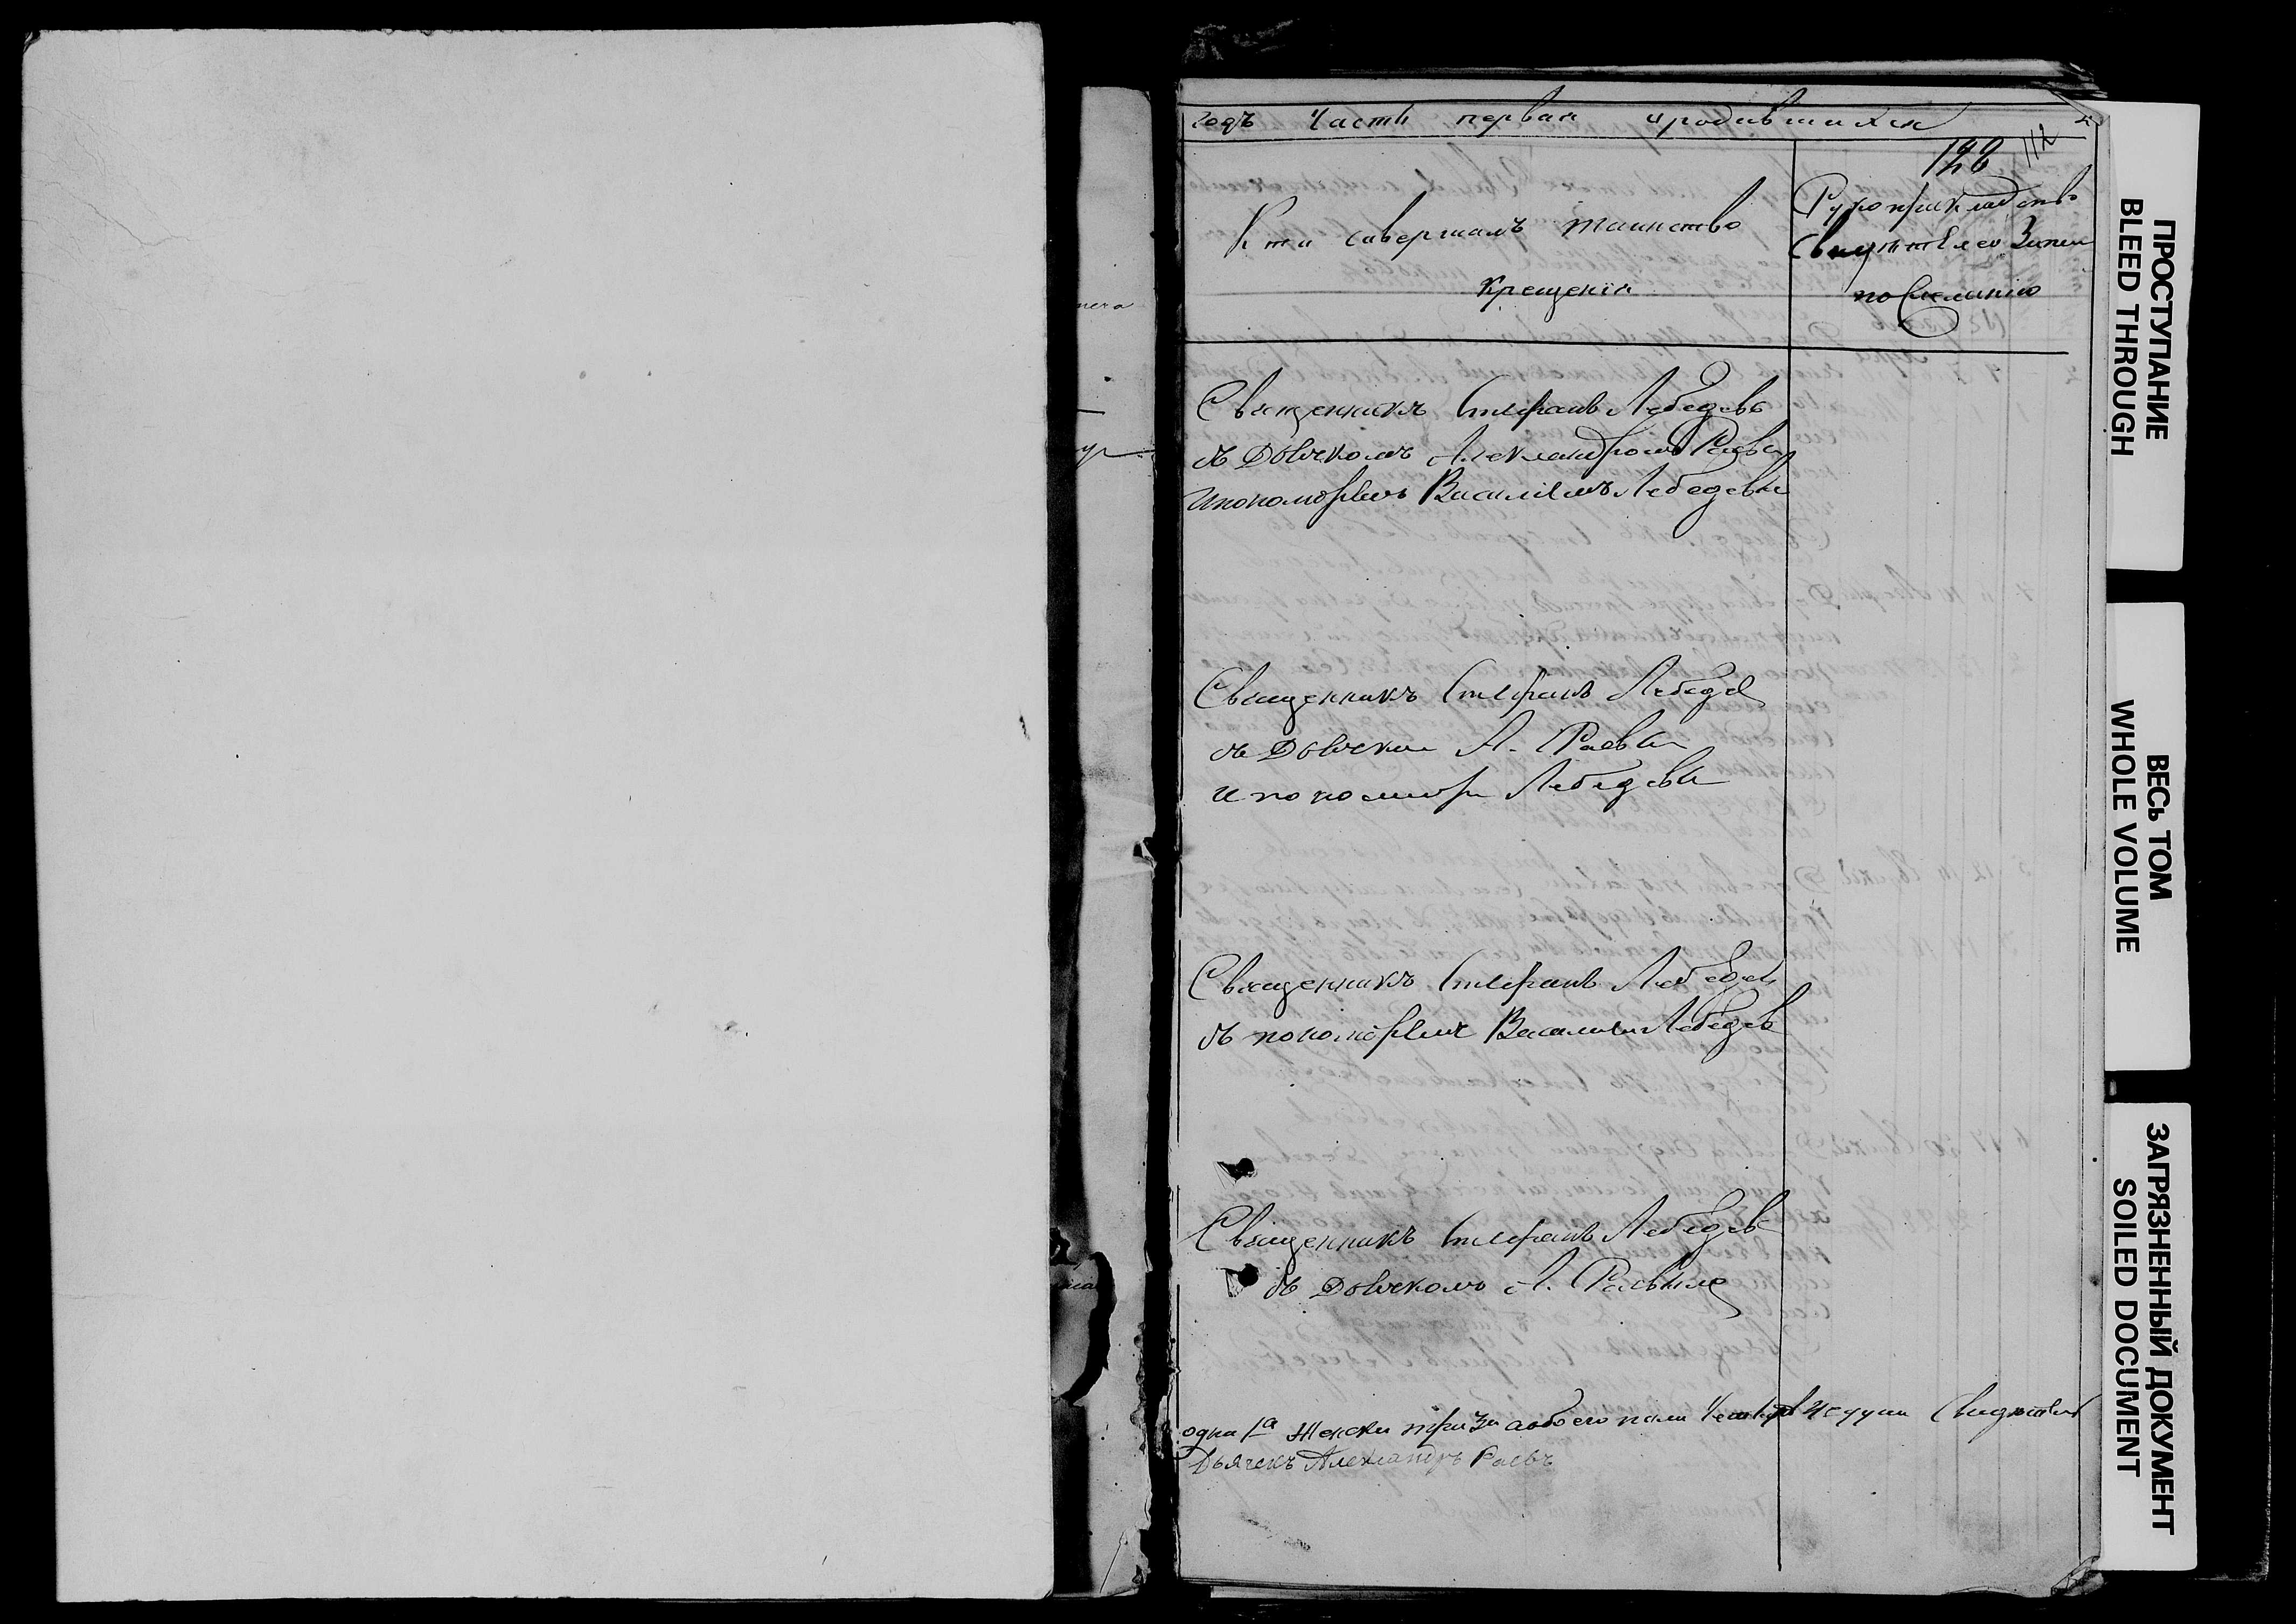 годъ Часть первая о родившихся
128 112
Кто совершалъ таинство
крещенія
Рукоприкладство
свидѣтелей Записи
по Желанію
Священникъ Стефанъ Лебедевъ
съ Дьячкомъ Александромъ Раевы
и пономоремъ Василіемъ Лебедевы
Священникъ Стефанъ Лебедев
съ Дьячком А. Раевы
и пономоре Лебедевы
Священникъ Стефанъ Лебедев
съ пономоремъ Василіем Лебедев
Священникъ Стефанъ Лебедев
съ Дьячкомъ А. Раевымъ
одна 1а Женска три 3и а обоего пола Четыре 4е души Свидѣтел
Дьячекъ Александръ Раевъ
ПРОСТУПАНИЕ
BLEED THROUGH
ВЕСЬ ТОМ
WHOLE VOLUME
ЗАГРЯЗНЕННЫЙ ДОКУМЕНТ
SOILED DOCUMENT